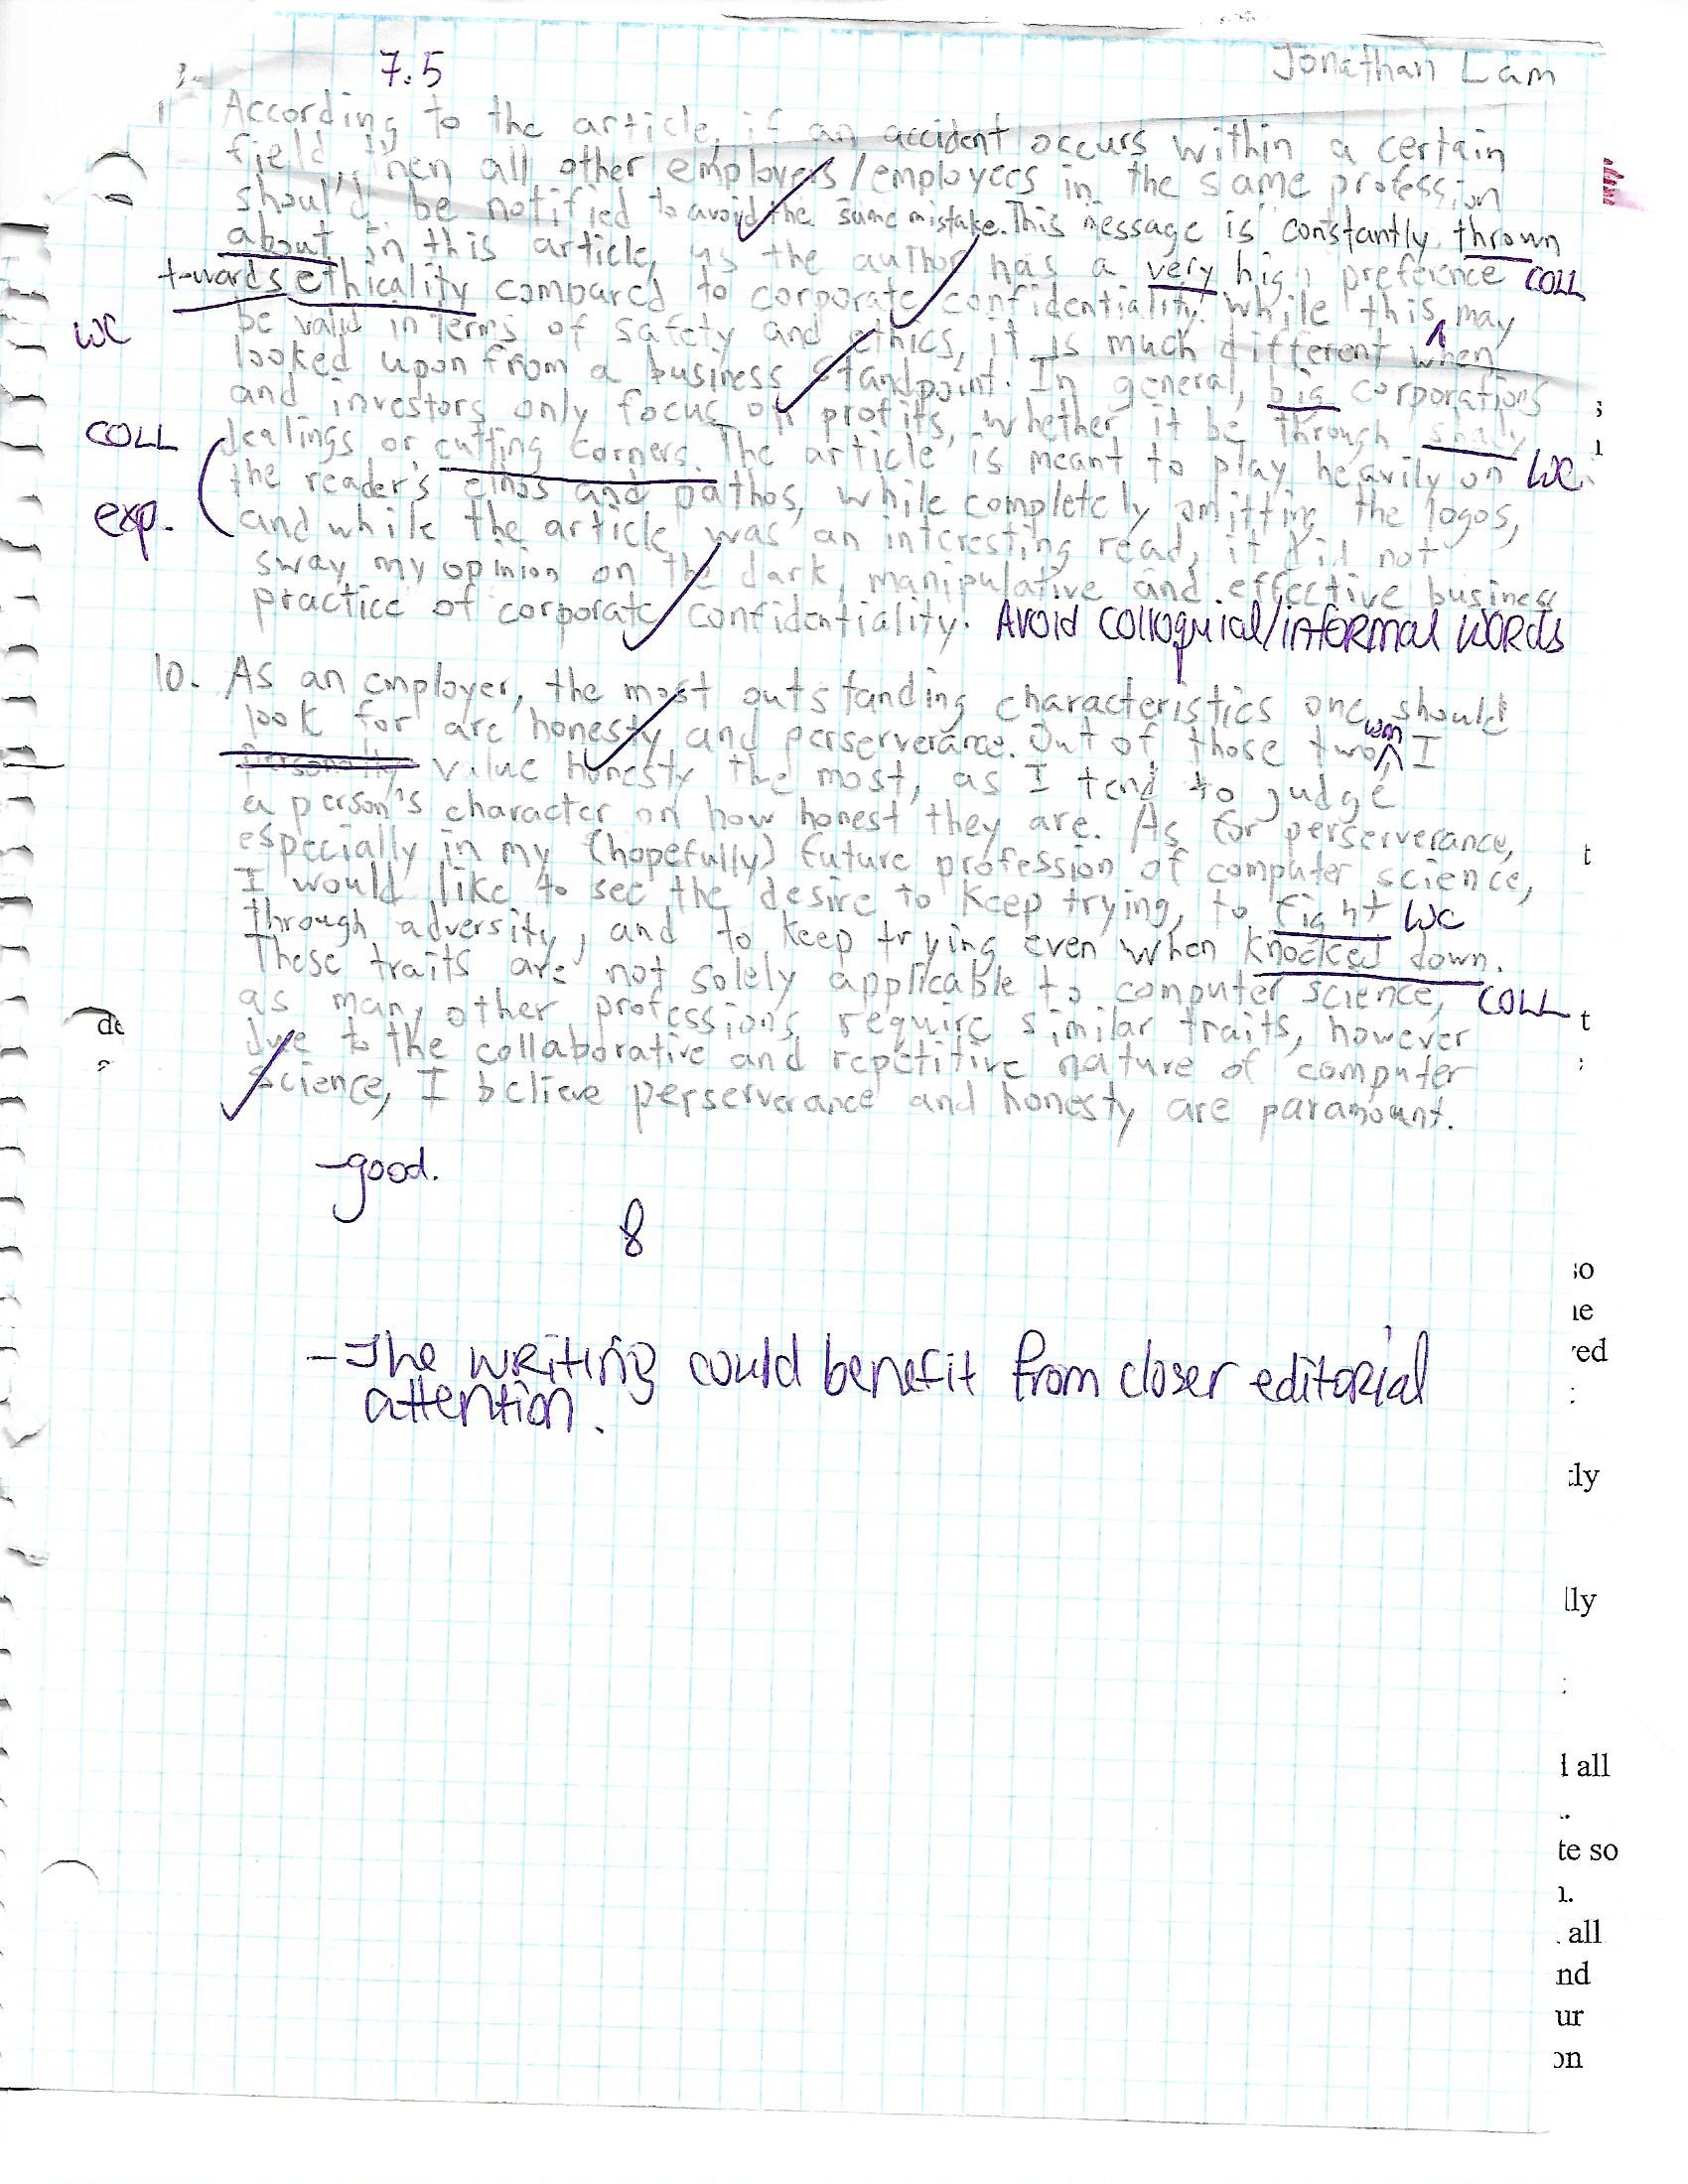 7.5
Jonathan Lam
According to the article, if an accident occurs within a certain
field, then all other employers/employees in the same profession
should be notified to avoid the same mistake. This message is constantly thrown
about in this article, as the author has a very high preference COLL
towards ethicality compared to corporate confidentiality. While this may
WC be valid in terms of safety and ethics, it is much different when
looked upon from a business standpoint. In general, big corporations
and investors only focus on profits, whether it be through shady
COLL dealings or cutting corners. The article is meant to play heavily on WC
the reader's ethos and pathos, while completely omitting the logos,
exp. and while the article was an interesting read, it did not
sway my opinion on the dark, manipulative and effective business
practice of corporate confidentiality. Avoid colloquial/informal words
10. As an employer, the most outstanding characteristics one should
look for are honesty and perserverance. Out of those two, I
personally value honesty the most, as I tend to judge
a person's character on how honest they are. As for perserverance,
especially in my (hopefully) future profession of computer science,
I would like to see the desire to keep trying, to fight WC
through adversity, and to keep trying even when knocked down.
These traits are not solely applicable to computer science, COLL
as many other professions require similar traits, however
due to the collaborative and repetitive nature of computer
science, I believe perserverance and honesty are paramount.
-good.
8
- The writing could benefit from closer editorial
attention.
s
t
de
t
so
he
red
tly
lly
d all
te so
n.
all
nd
ur
on